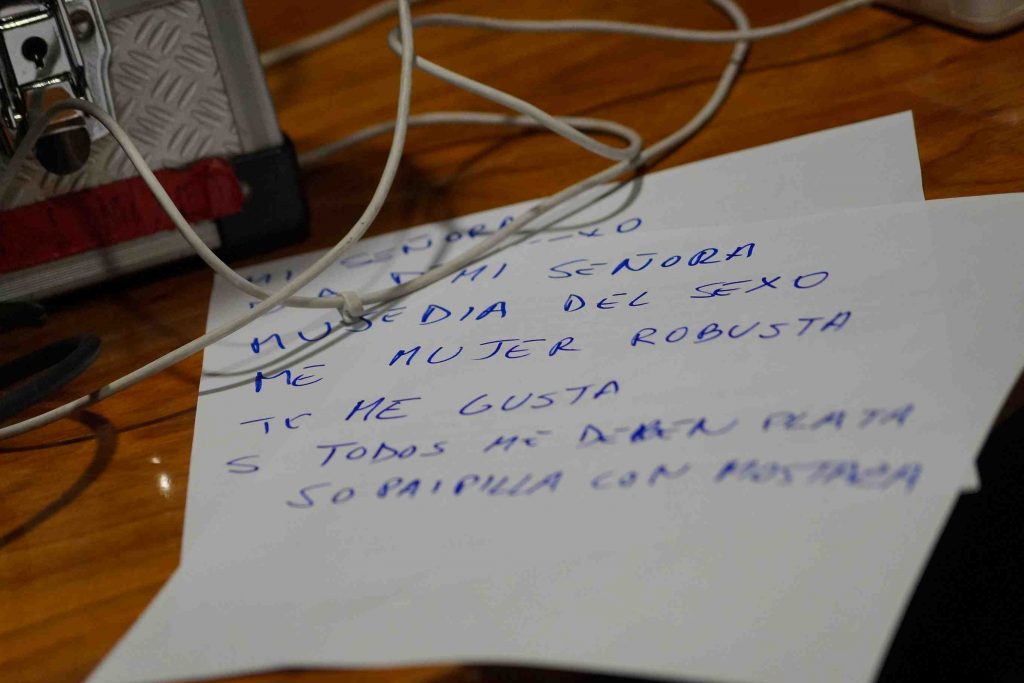 MI SEÑORA
MI SEÑORA
MUJE DIA DEL SEXO
ME MUJER ROBUSTA
TE ME GUSTA
S TODOS ME DEBEN PLATA
SOPAIPILLA CON MOSTAZA